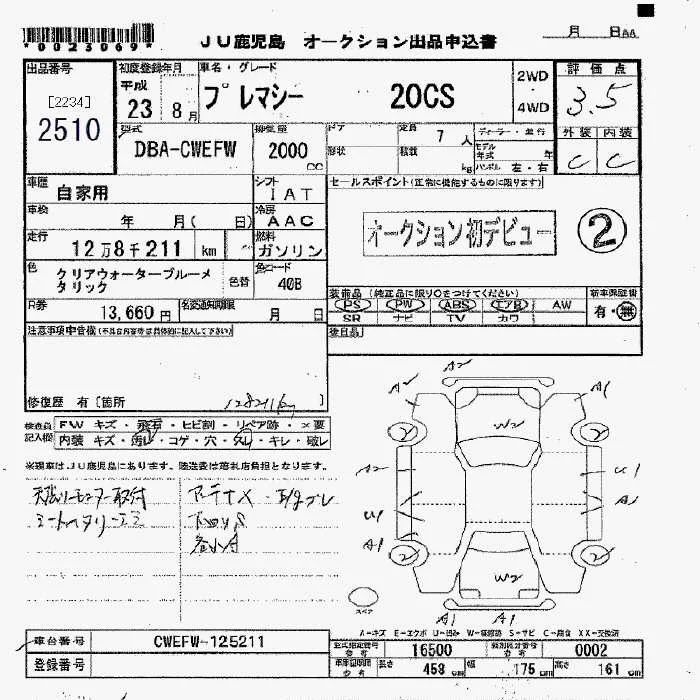 *0023069*
JU鹿児島 オークション出品申込書
月 日
出品番号
[2234]
2510
初度登録年月
平成
23 8月
車名・グレード
プレマシー 20CS
2WD
・
4WD
評価点
3.5
外装 内装
C C
型式
DBA-CWEFW
排気量
2000
cc
ドア
形状
定員
7人
積載
kg
ディーラー・並行
モデル
年式 年
ハンドル 左・右
車歴
自家用
シフト
IAT
セールスポイント(正常に機能するものに限ります)
オークション初デビュー
2
車検
年 月( 日)
冷房
AAC
走行
12万8千211 km
燃料
ガソリン
色
クリアウォーターブルーメタリック
色替
色コード
40B
装備品(純正品に限り○をつけてください)
PS PW ABS エアB AW
SR ナビ TV カワ
新車保証書
有・無
R券
13,660円
名変通知期限
月 日
後日品
注意事項申告欄(不具合内容等は具体的に記入して下さい)
修復歴 有[箇所 ]
128211km
検査員
記入欄
FW キズ・飛石・ヒビ割・リペア跡・×要
内装 キズ・汚レ・コゲ・穴・スレ・キレ・破レ
※現車はJU鹿児島にあります。陸送費は落札店負担となります。
A2
A2
A1
W2
2
2
A2
U1
U1
A1
A1
2
2
W2
A1
A1
スペア
A-キズ E-エクボ U-凹み W-補修跡 S-サビ C-腐食 XX-交換済
車台番号
CWEFW-125211
登録番号
型式指定番号
参考
16500
類別区分番号
参考
0002
長さ 458cm
幅 175cm
高さ 161cm